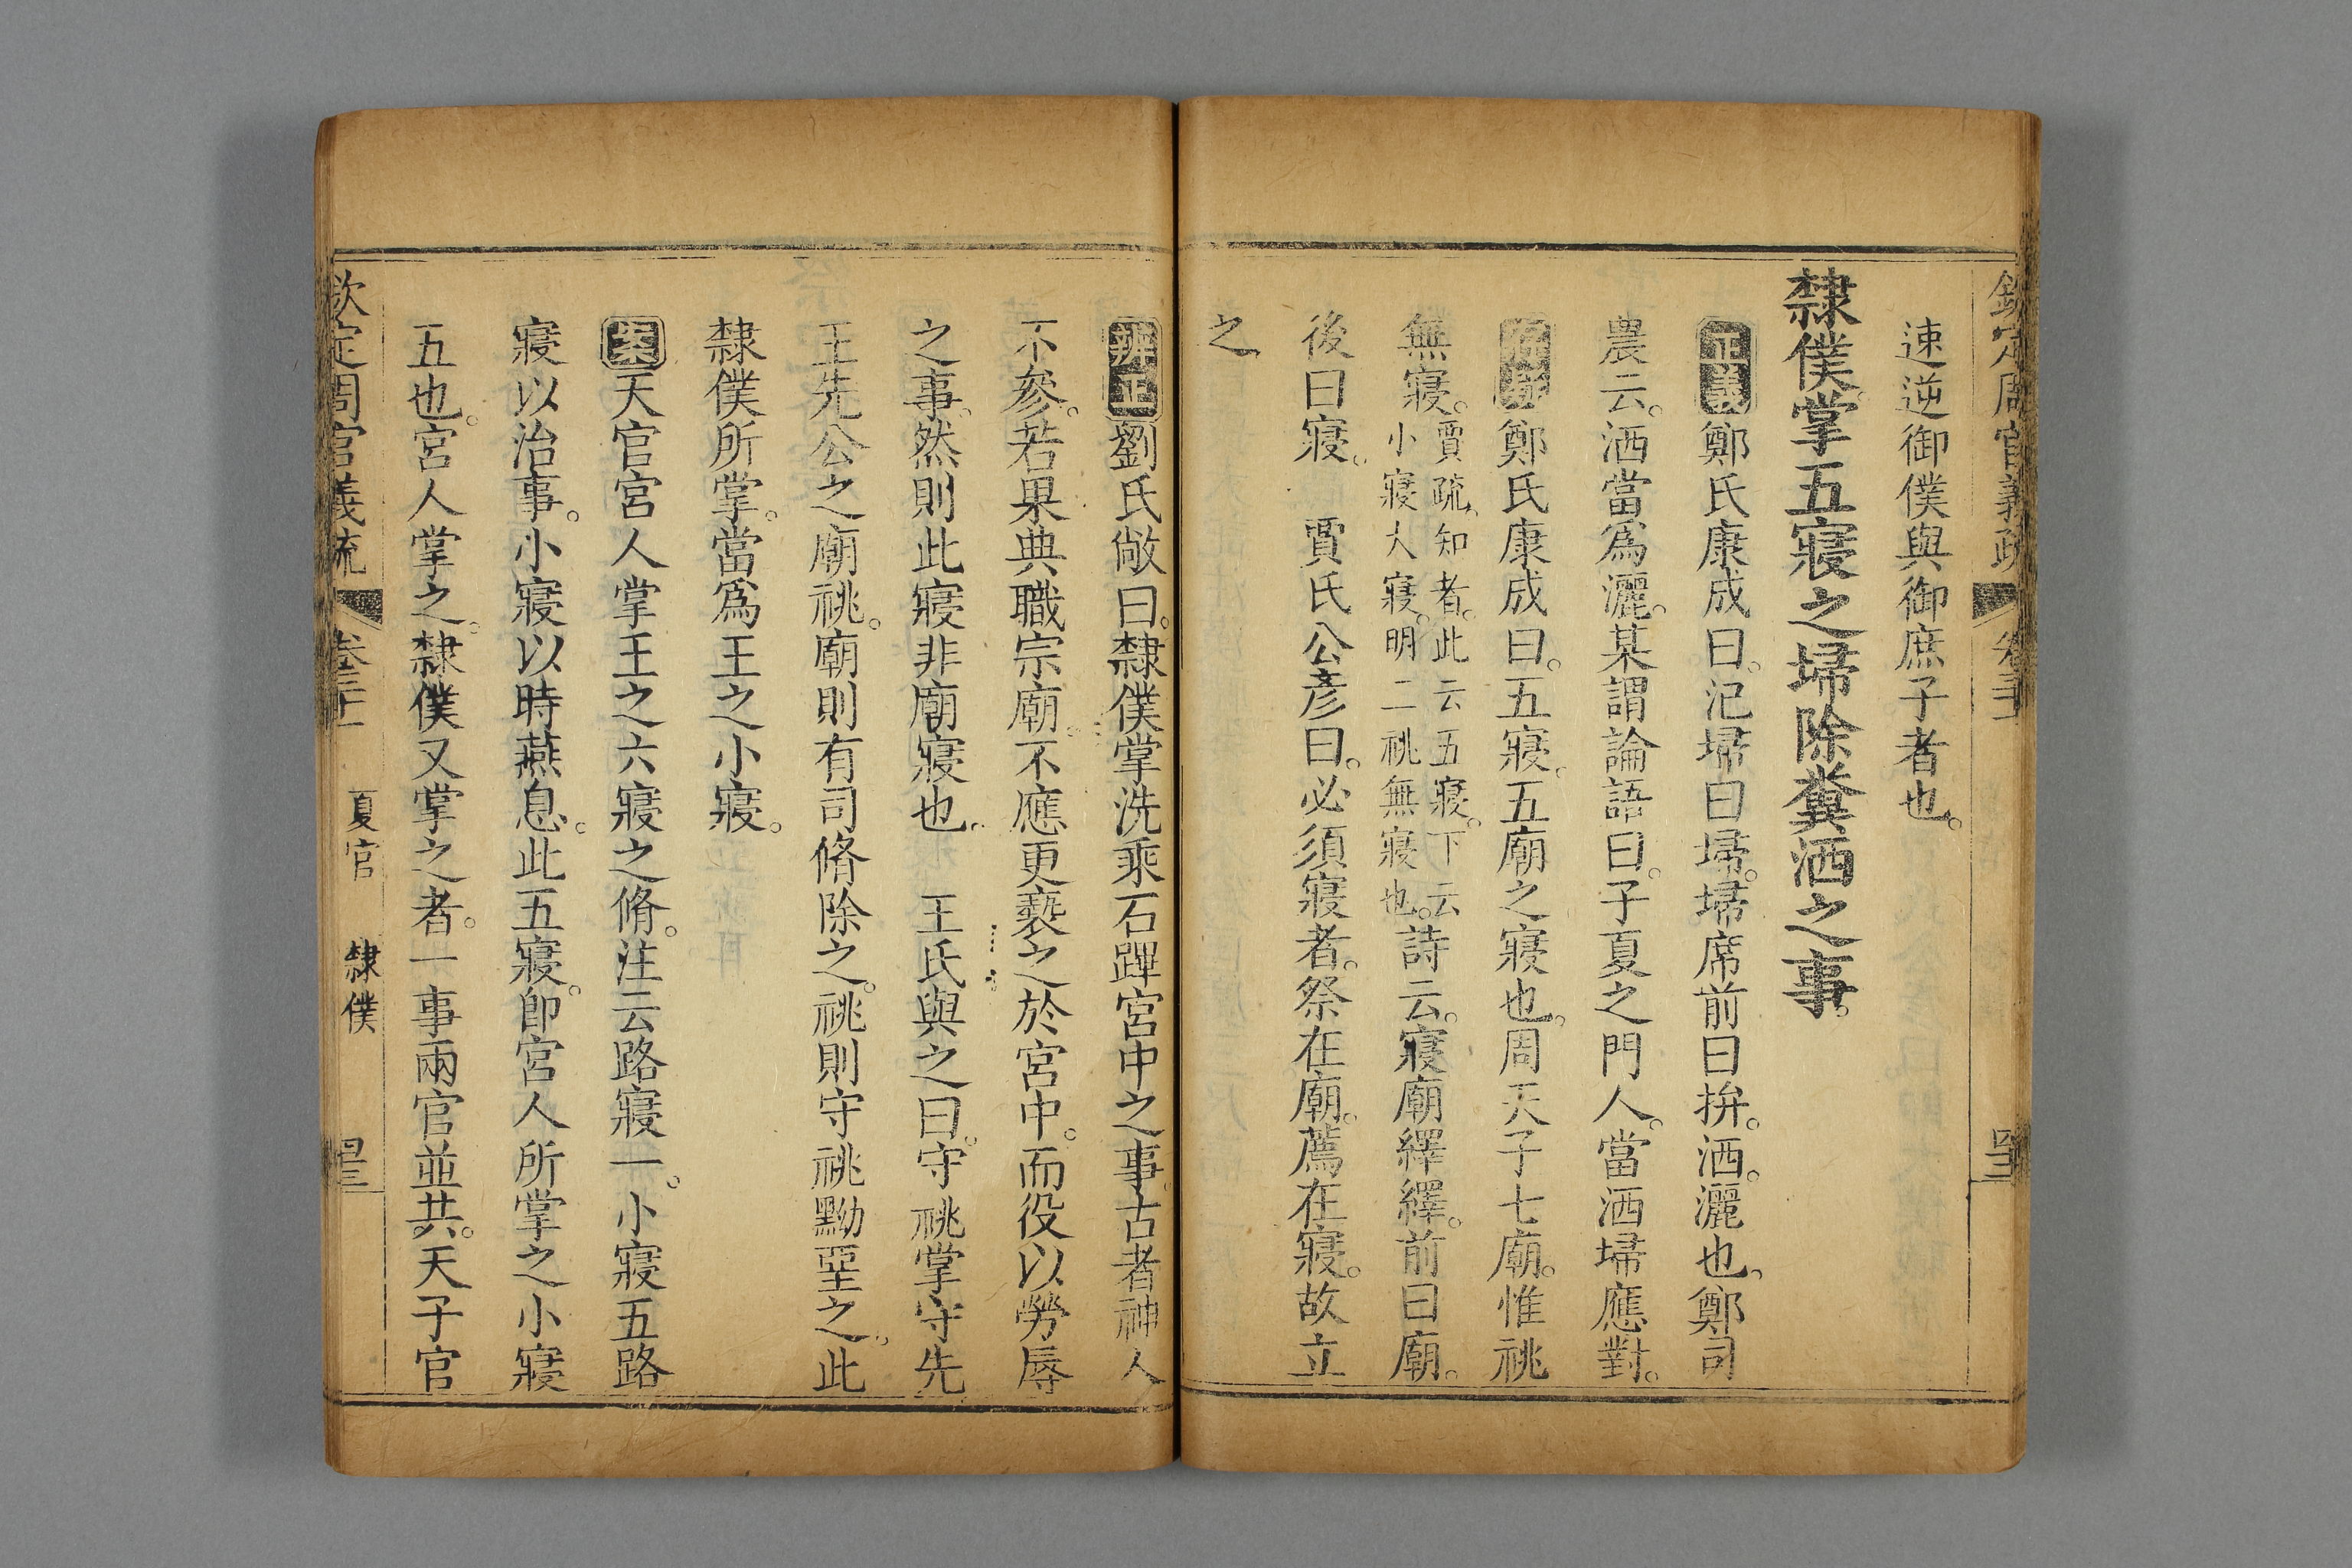 速逆御僕與御庶子者也。
隸僕掌五寢之埽除糞洒之事。
正義鄭氏康成曰。氾埽曰埽。埽席前曰拚。洒。灑也。鄭司
農云。洒當爲灑。某謂論語曰。子夏之門人。當洒埽應對。
鄭氏康成曰。五寢。五廟之寢也。周天子七廟。惟祧
無寢。賈疏。知者。此云五寢。下云小寢大寢。明二祧無寢也。詩云。寢廟繹繹。前曰廟。
後曰寢。　賈氏公彥曰。必須寢者。祭在廟。薦在寢。故立
之
辨正劉氏敞曰。隸僕掌洗乘石蹕宮中之事。古者神人
不參。若果典職宗廟。不應更褻之於宮中。而役以勞辱
之事。然則此寢非廟寢也。　王氏與之曰。守祧掌守先
王先公之廟祧。廟則有司脩除之。祧則守祧黝堊之。此
隸僕所掌。當爲王之小寢。
案天官宮人掌王之六寢之脩。注云路寢一。小寢五路
寢以治事。小寢以時燕息。此五寢。卽宮人所掌之小寢
五也。宮人掌之。隸僕又掌之者。一事兩官並共。天子官
欽定周官義疏　卷三十一　夏官　隸僕